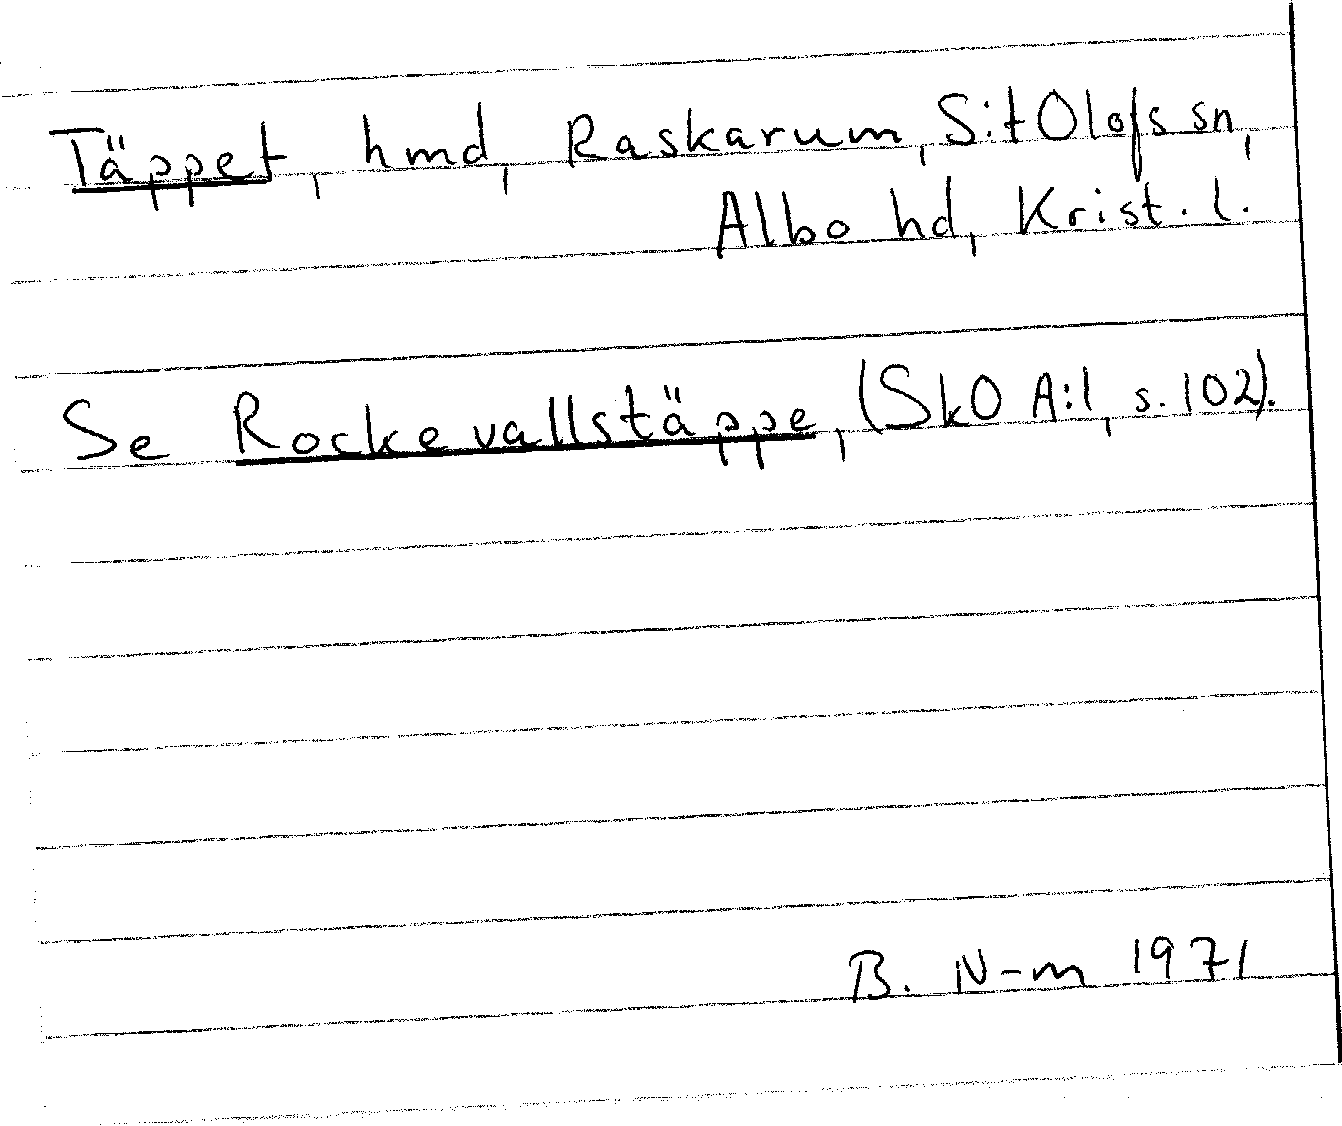 Täppet, hmd, Raskarum, S:t Olofs sn,
Albo hd, Krist. l.
Se Rockevallstäppe, (SkO A:1, s. 102).
B. N-m 1971